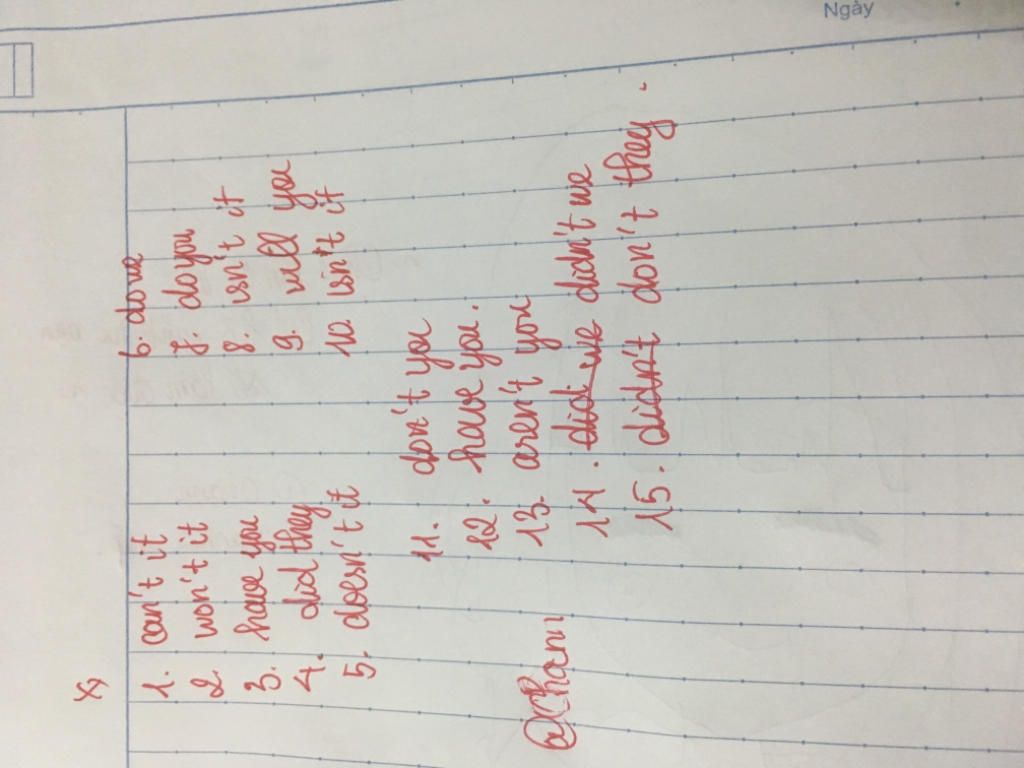 Ngày
1. can't it 6. do we
2 won't it 7. do you
3. have you 8. isn't it
4. did they 9. will you
5. doesn't it 10 isn't it
11. don't you
12. have you.
13. aren't you
14. did we didn't we
15. didn't don't they.